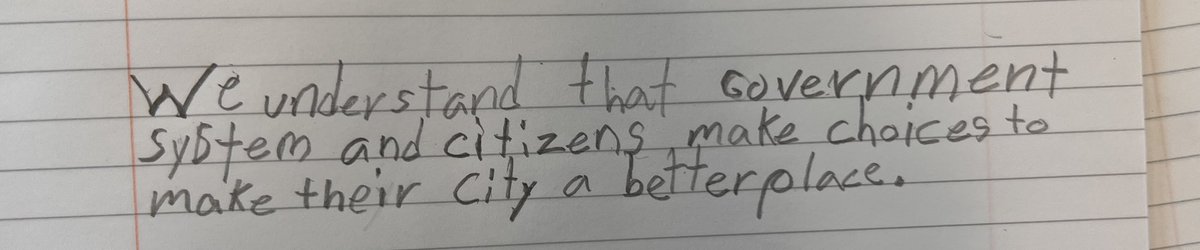 We understand that Government
system and citizens make choices to
make their city a better place.